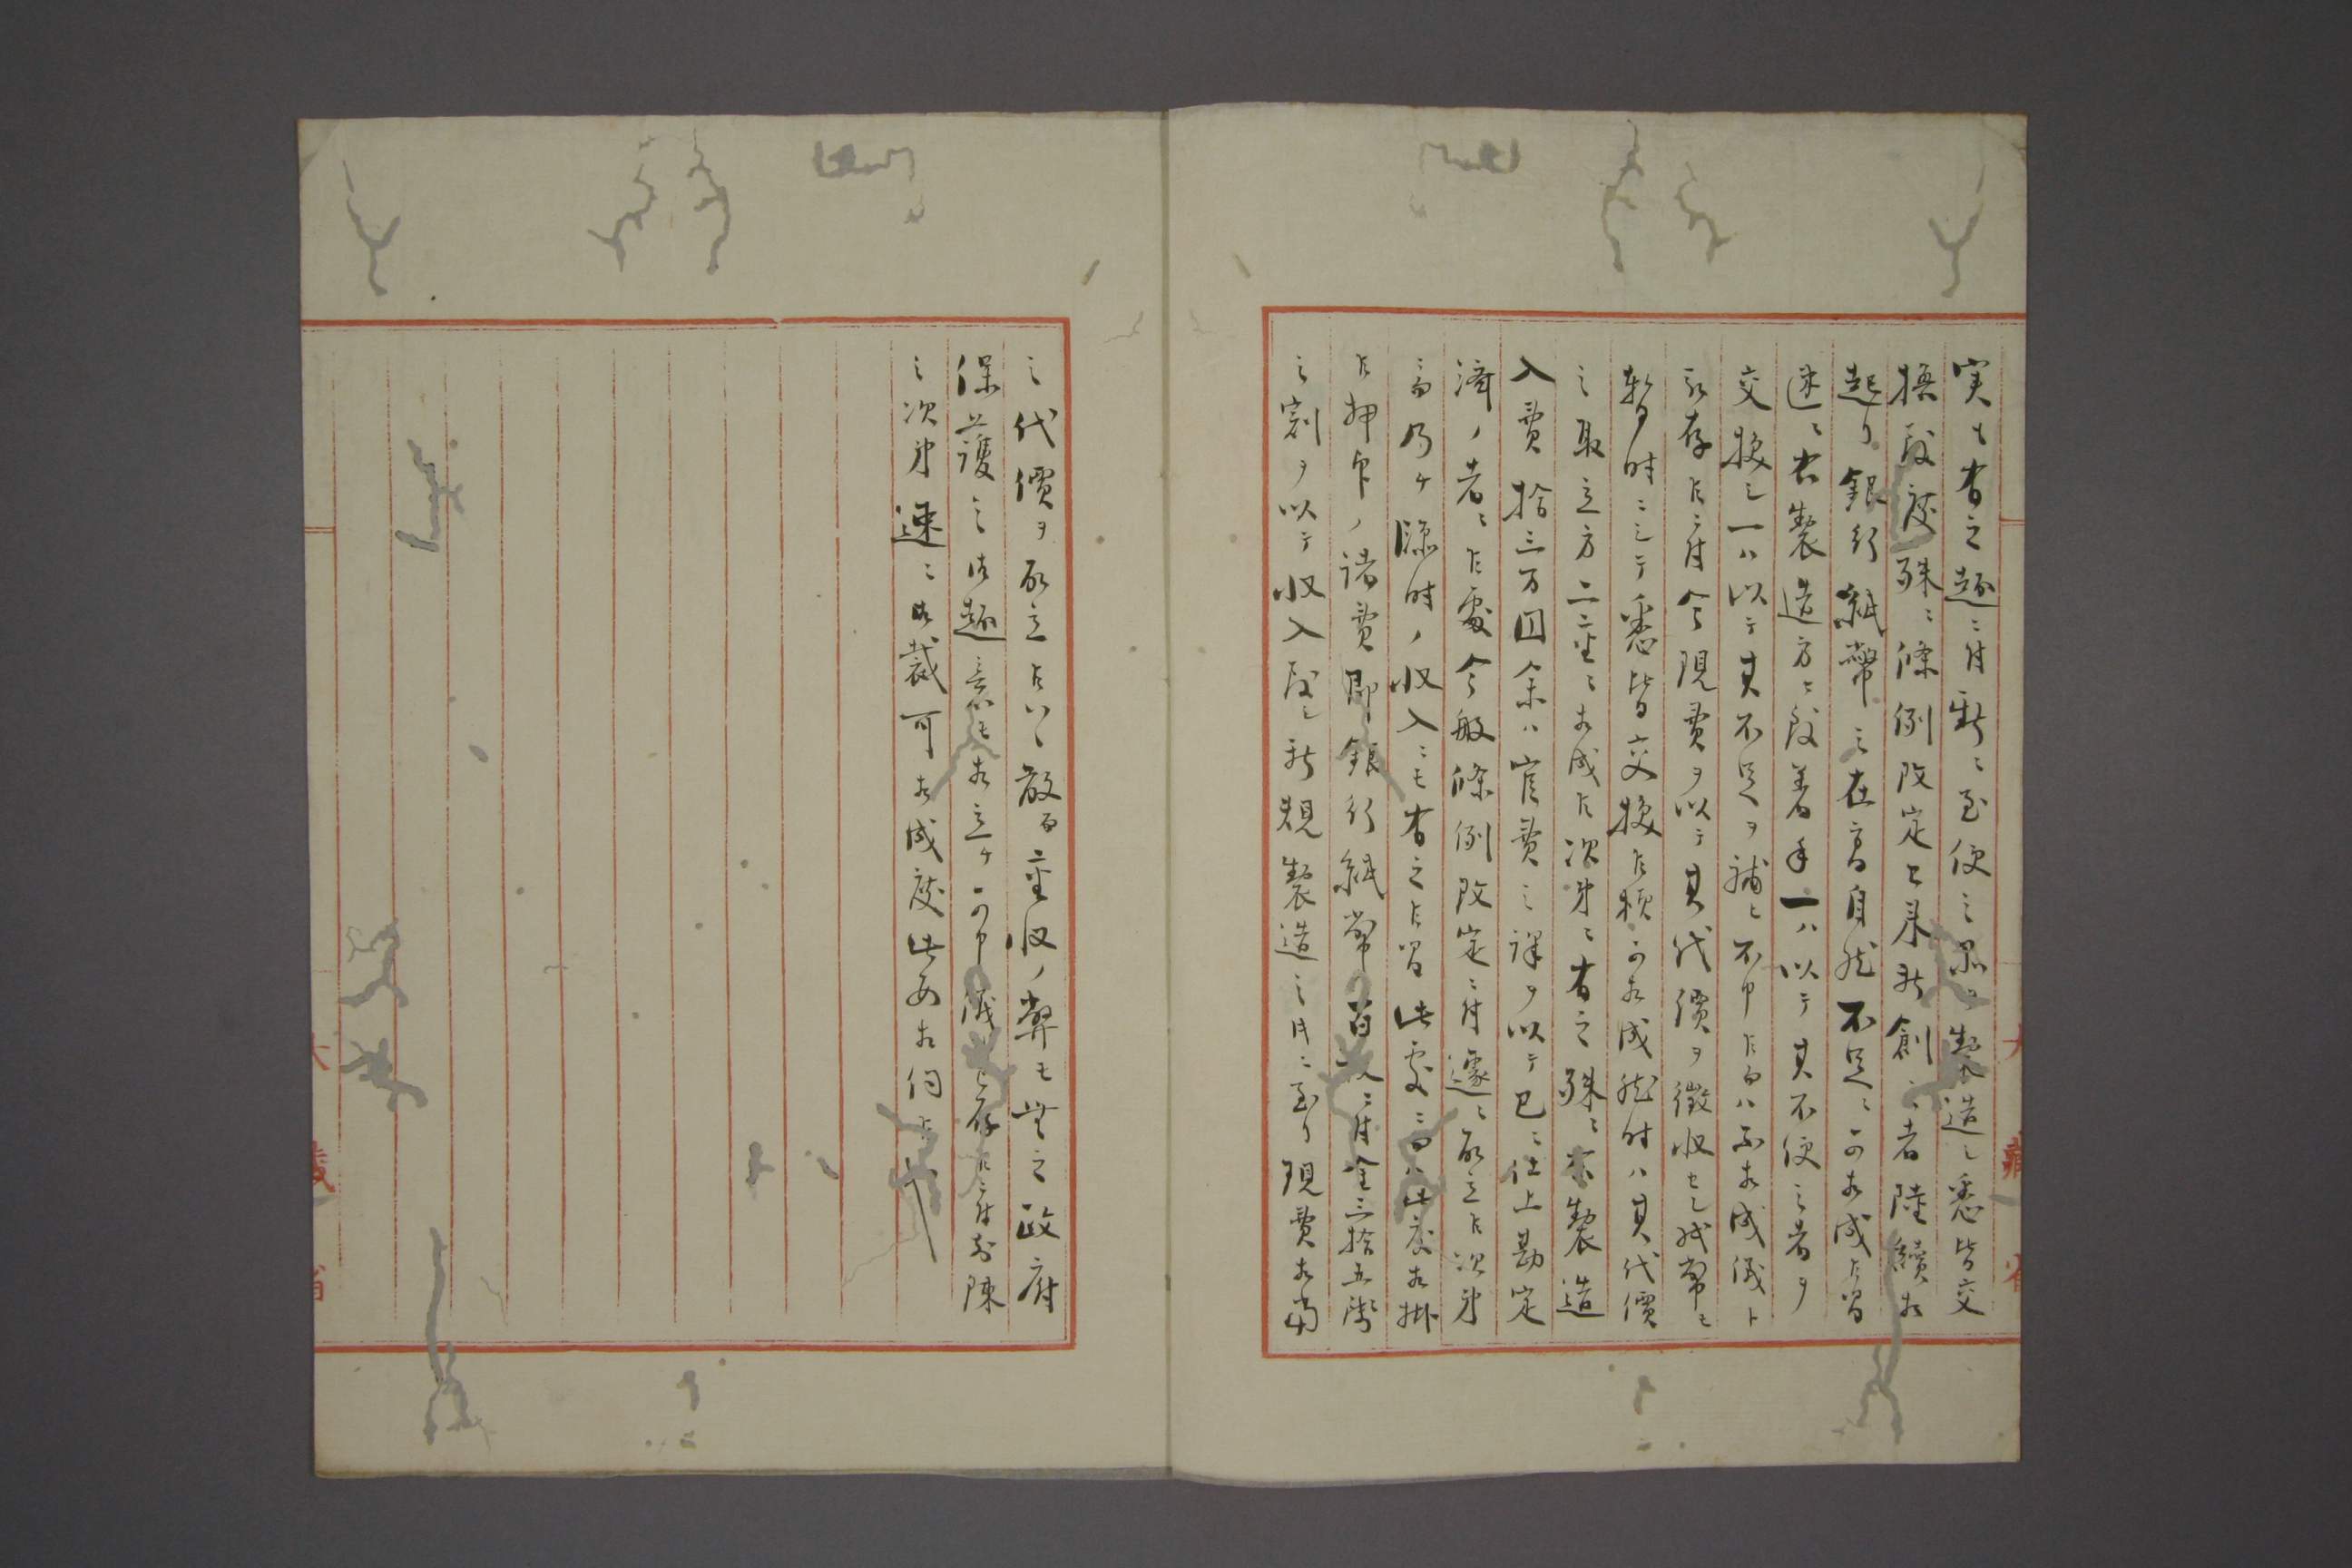 実モ有之趣ニ付新ニ至便之品ヲ製造シ悉皆交
換致度殊ニ條例改定已来新創ノ者陸續相
起リ銀行紙幣之在高自然不足ニ可相成候間
速ニ右製造方ニ致着手一ハ以テ其不便之者ヲ
交換シ一ハ以テ其不足ヲ補ヒ不申候而ハ不相成儀ト
被存候ニ付今現費ヲ以テ其代價ヲ徴収セシ紙幣モ
暫時ニシテ悉皆交換候様可相成然時ハ其代價
之取立方二重ニ相成候次第ニ有之殊ニ右製造
入費拾三万圓余ハ官費之譯ヲ以テ已ニ仕上勘定
濟ノ者ニ候處今般條例改定ニ付遽ニ取立候次第
ニ而乃ケ臨時ノ収入ニモ有之候間此處ニ而ハ此度相掛
候押印ノ諸費即銀行紙幣百枚ニ付金三拾五錢
之割ヲ以テ収入致シ新規製造之日ニ至リ現費相当
之代價ヲ取立候ハヽ敢而重収ノ弊モ無之政府
保護之御趣意モ相立ケ可申儀ト存候ニ付前陳
之次第速ニ御裁可相成度此段相伺候也
大藏省
大藏省